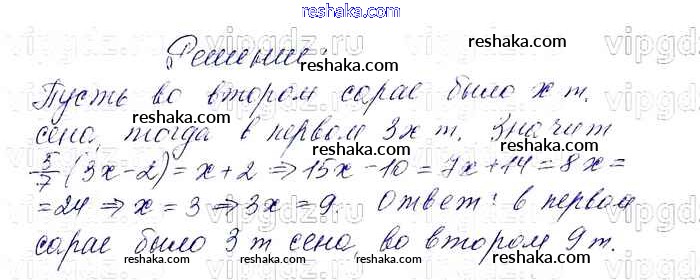 reshaka.com
Решение:
reshaka.com
reshaka.com
Пусть во втором сарае было x т.
reshaka.com
сена, тогда в первом 3x т. Значит
reshaka.com
5/7 (3x-2) = x+2 ⇒ 15x-10 = 7x+14 = 8x =
reshaka.com
= 24 ⇒ x = 3 ⇒ 3x = 9. Ответ: в первом
reshaka.com
сарае было 3 т сена, во втором 9 т.
reshaka.com
vipgdz.ru